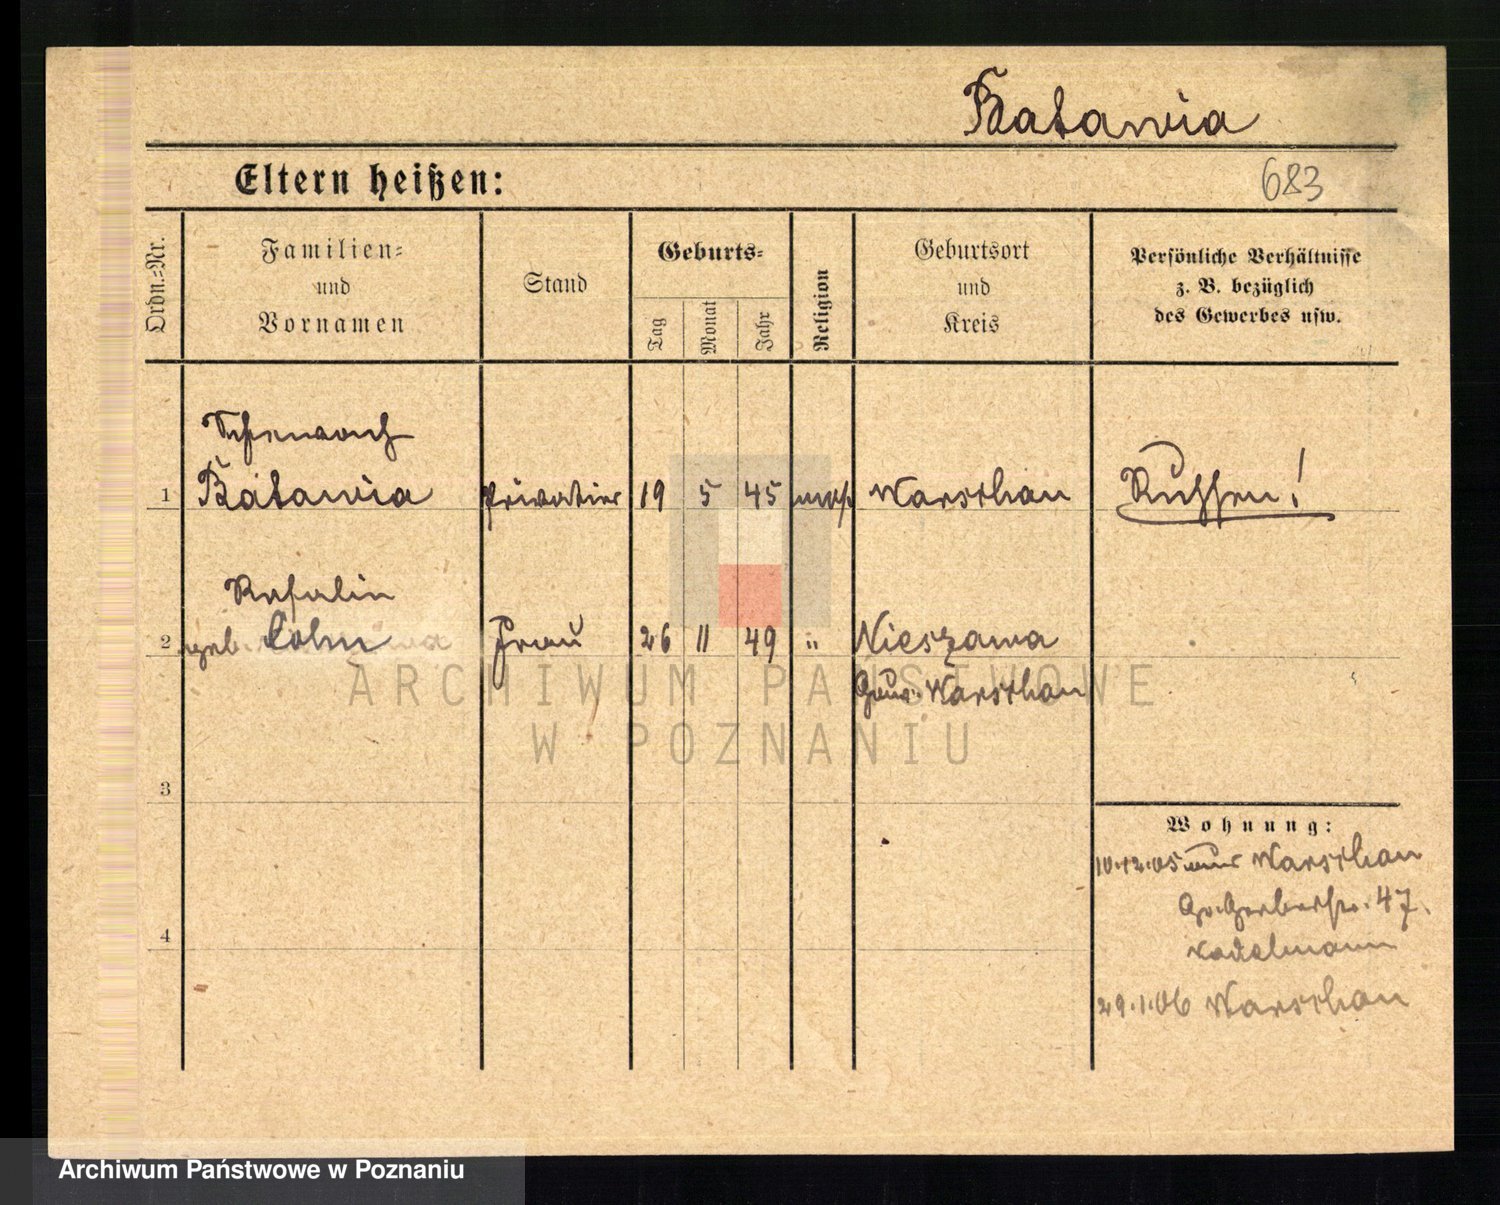 Batawia
Eltern heißen:
683
Ordn.-Nr.
Familien-
und
Vornamen
Stand
Geburts-
Tag
Monat
Jahr
Religion
Geburtsort
und
Kreis
Persönliche Verhältnisse
z. B. bezüglich
des Gewerbes usw.
1 Batawia Privatier 19 5 45 mos Warschau Russen!
Rosalin
2 geb. Cohn Frau 26 11 49 " Nieszawa
Gouv. Warschau
3
Wohnung:
10.12.05 aus Warschau
Gr. Gerberstr. 47.
4
Kadelmann
29.1.06 Warschau
ARCHIWUM PAŃSTWOWE
W POZNANIU
Archiwum Państwowe w Poznaniu